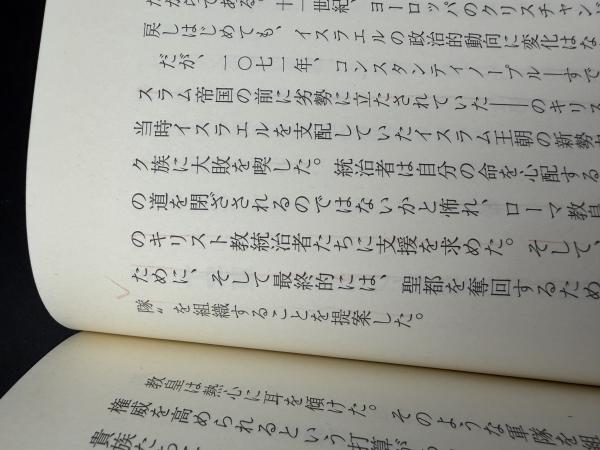 だからである。十一世紀、ヨーロッパのクリスチャンが
戻しはじめても、イスラエルの政治的動向に変化はな
だが、一〇七一年、コンスタンティノープル――すで
スラム帝国の前に劣勢に立たされていた――のキリス
当時イスラエルを支配していたイスラム王朝の新勢力
ク族に大敗を喫した。統治者は自分の命を心配する
の道を閉ざされるのではないかと怖れ、ローマ教皇
のキリスト教統治者たちに支援を求めた。そして、
ために、そして最終的には、聖都を奪回するため
隊〟を組織することを提案した。
教皇は熱心に耳を傾けた。そのような軍隊を組
権威を高められるという打算が
貴族たち